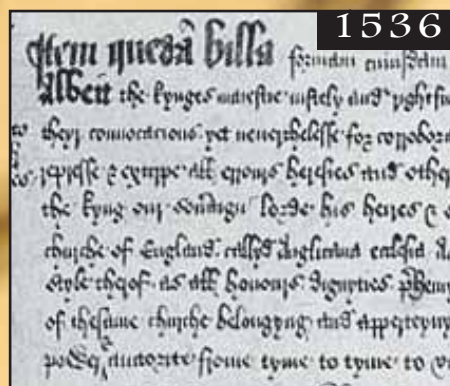 1536
Item quedã billa formam cuiusdam
Albeit the kynges maiestie iustely and ryghtfu
theyr convocacions yet neverthelesse for corrobora
represse & extirpe all errours heresies and other
the kyng our lorde his heires &
churche of England callyd Anglicana
style therof as all honours dignyties
of thesame churche belongyng and apperteyny
auctorite frome tyme to tyme to